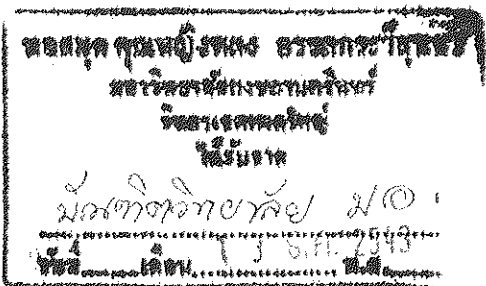 หอสมุด คุณหญิงหลง อรรถกระวีสุนทร
มหาวิทยาลัยสงขลานครินทร์
วิทยาเขตหาดใหญ่
ได้รับจาก
บัณฑิตวิทยาลัย ม.อ.
วันที่ เดือน 2543 พ.ศ.